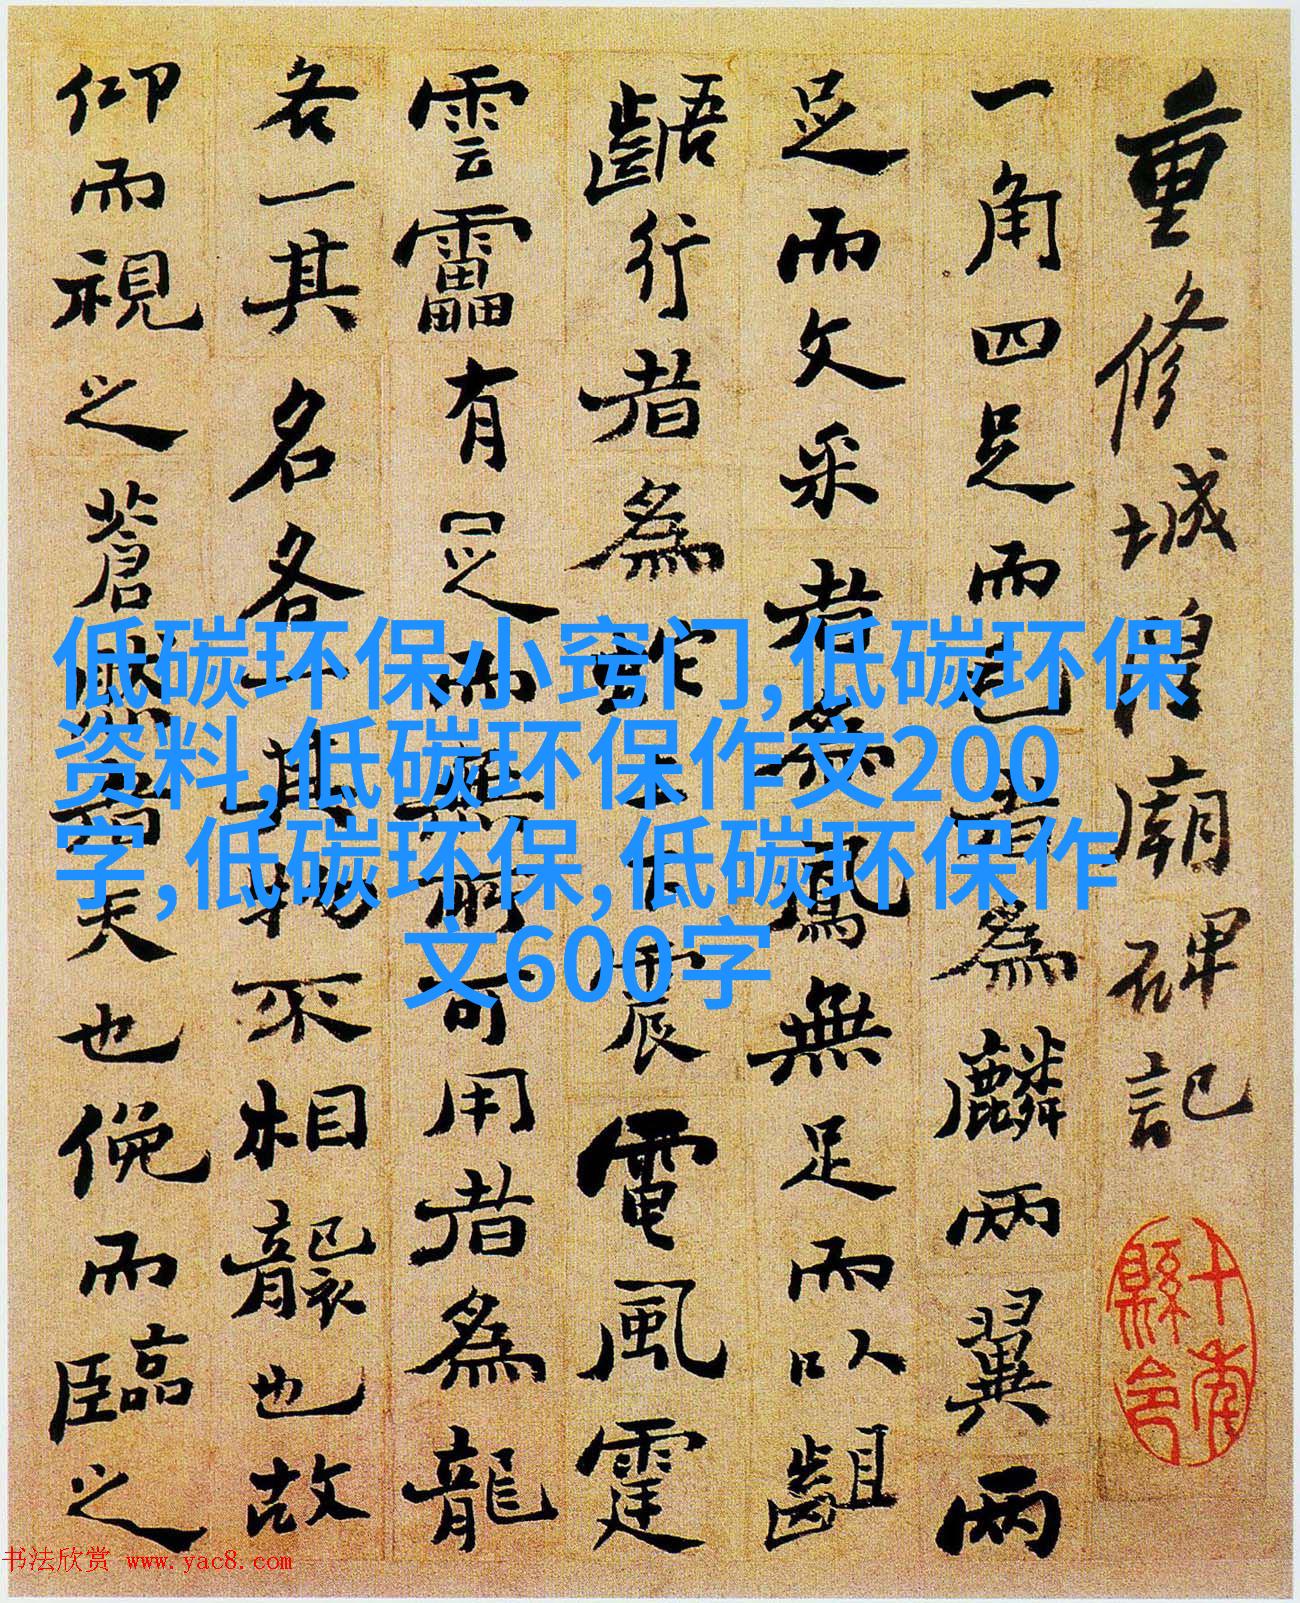 重修城隍廟碑記
一角四足而毛者為麟兩翼兩
足而文采者為鳳無足而以齟
齬行者為蛇上下震電風霆
雲靁有足而無所可用者為龍
各一其名各一其物不相襲也故
仰而視之蒼然者天也俛而臨之
十南縣令
低碳环保小窍门,低碳环保
资料,低碳环保作文200
字,低碳环保,低碳环保作
文600字
书法欣赏 www.yac8.com